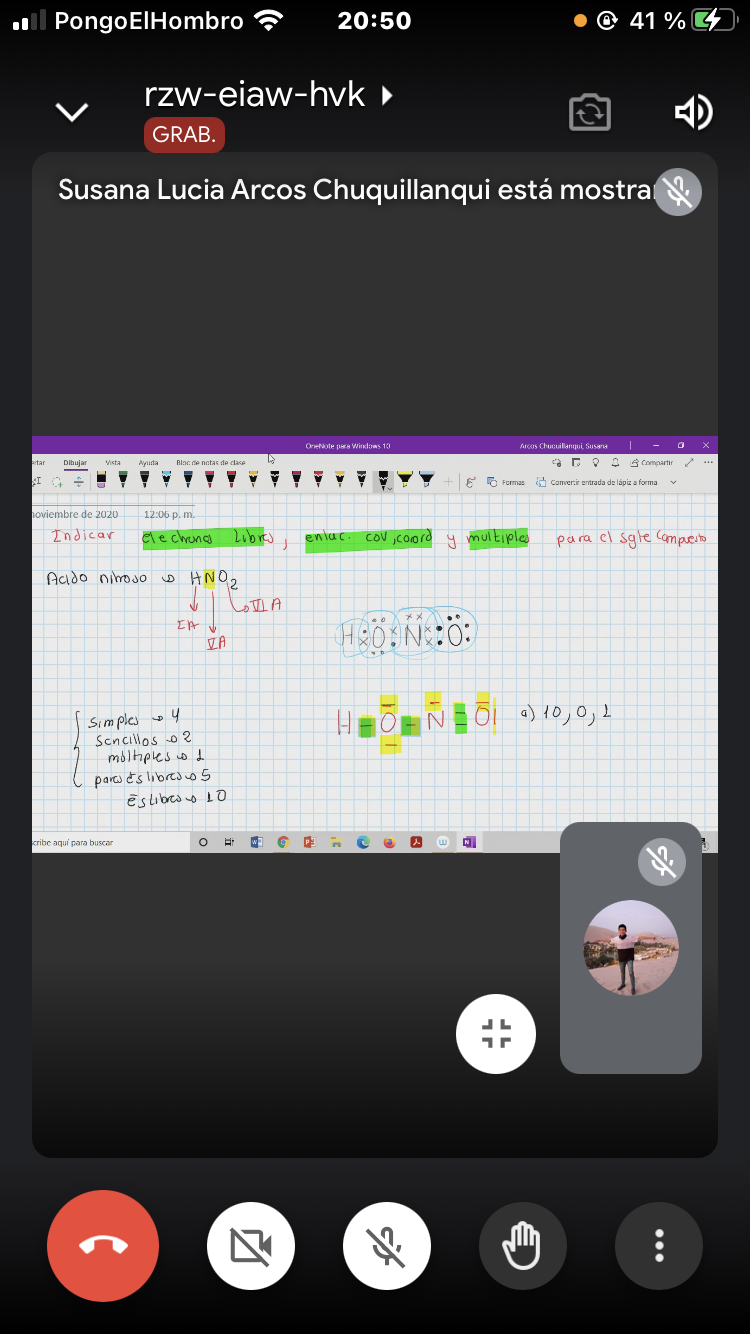 PongoElHombro 20:50 41 %
rzw-eiaw-hvk
GRAB.
Susana Lucia Arcos Chuquillanqui está mostra
OneNote para Windows 10 Arcos Chuquillanqui, Susana
ertar Dibujar Vista Ayuda Bloc de notas de clase Compartir
Formas Convertir entrada de lápiz a forma
noviembre de 2020 12:06 p. m.
Indicar electrones libres, enlac. cov, coord y multiples para el sgte Compuesto
Acido nitroso → HNO2
IA VA VIA
H O N O
H - O - N = O| a) 10, 0, 1
simples → 4
sencillos → 2
múltiples → 1
pares ēs libres → 5
ēs libres → 10
scribe aquí para buscar